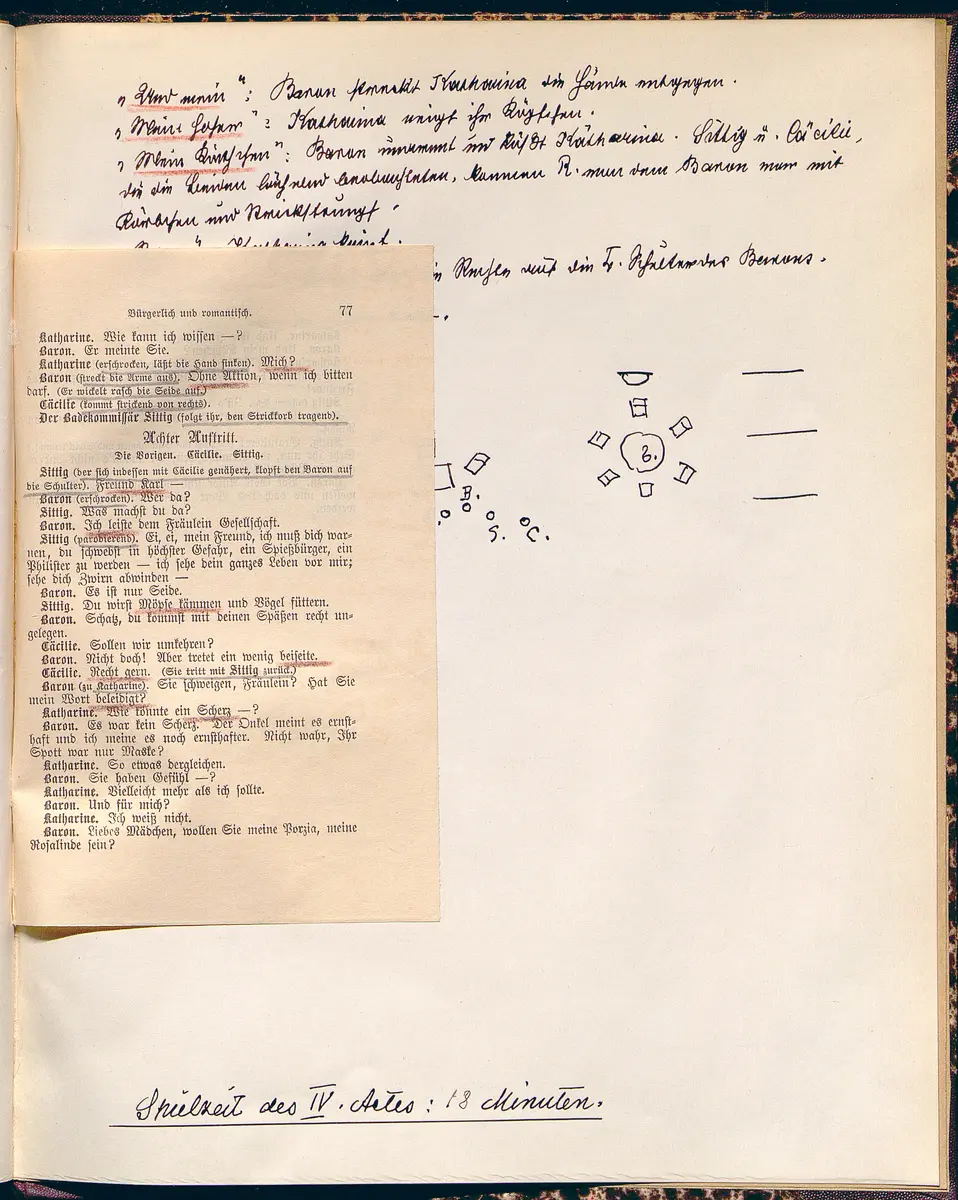 „Und mein“: Baron streckt Katharina die Hände entgegen.
„Mein hoher“: Katharina neigt ihr Köpfchen.
„Mein Käthchen“: Baron umarmt und küßt Katharina. Sittig u. Cäcilie,
die die Beiden lächelnd beobachteten, kommen R. von dem Baron vor mit
Körbchen und Strickstrumpf.
Rechte auf die L. Schulter des Barons.
Bürgerlich und romantisch. 77
Katharine. Wie kann ich wissen —?
Baron. Er meinte Sie.
Katharine (erschrocken, läßt die Hand sinken). Mich?
Baron (streckt die Arme aus). Ohne Aktion, wenn ich bitten
darf. (Er wickelt rasch die Seide auf.)
Cäcilie (kommt strickend von rechts).
Der Badekommissär Sittig (folgt ihr, den Strickkorb tragend).
Achter Auftritt.
Die Vorigen. Cäcilie. Sittig.
Sittig (der sich indessen mit Cäcilie genähert, klopft den Baron auf
die Schulter). Freund Karl —
Baron (erschrocken). Wer da?
Sittig. Was machst du da?
Baron. Ich leiste dem Fräulein Gesellschaft.
Sittig (parodierend). Ei, ei, mein Freund, ich muß dich war-
nen, du schwebst in höchster Gefahr, ein Spießbürger, ein
Philister zu werden — ich sehe dein ganzes Leben vor mir;
sehe dich Zwirn abwinden —
Baron. Es ist nur Seide.
Sittig. Du wirst Möpse kämmen und Vögel füttern.
Baron. Schatz, du kommst mit deinen Späßen recht un-
gelegen.
Cäcilie. Sollen wir umkehren?
Baron. Nicht doch! Aber tretet ein wenig beiseite.
Cäcilie. Recht gern. (Sie tritt mit Sittig zurück.)
Baron (zu Katharine). Sie schweigen, Fräulein? Hat Sie
mein Wort beleidigt?
Katharine. Wie könnte ein Scherz —?
Baron. Es war kein Scherz. Der Onkel meint es ernst-
haft und ich meine es noch ernsthafter. Nicht wahr, Ihr
Spott war nur Maske?
Katharine. So etwas dergleichen.
Baron. Sie haben Gefühl —?
Katharine. Vielleicht mehr als ich sollte.
Baron. Und für mich?
Katharine. Ich weiß nicht.
Baron. Liebes Mädchen, wollen Sie meine Porzia, meine
Rosalinde sein?
B.
S. C.
Spielzeit des IV. Actes: 18 Minuten.